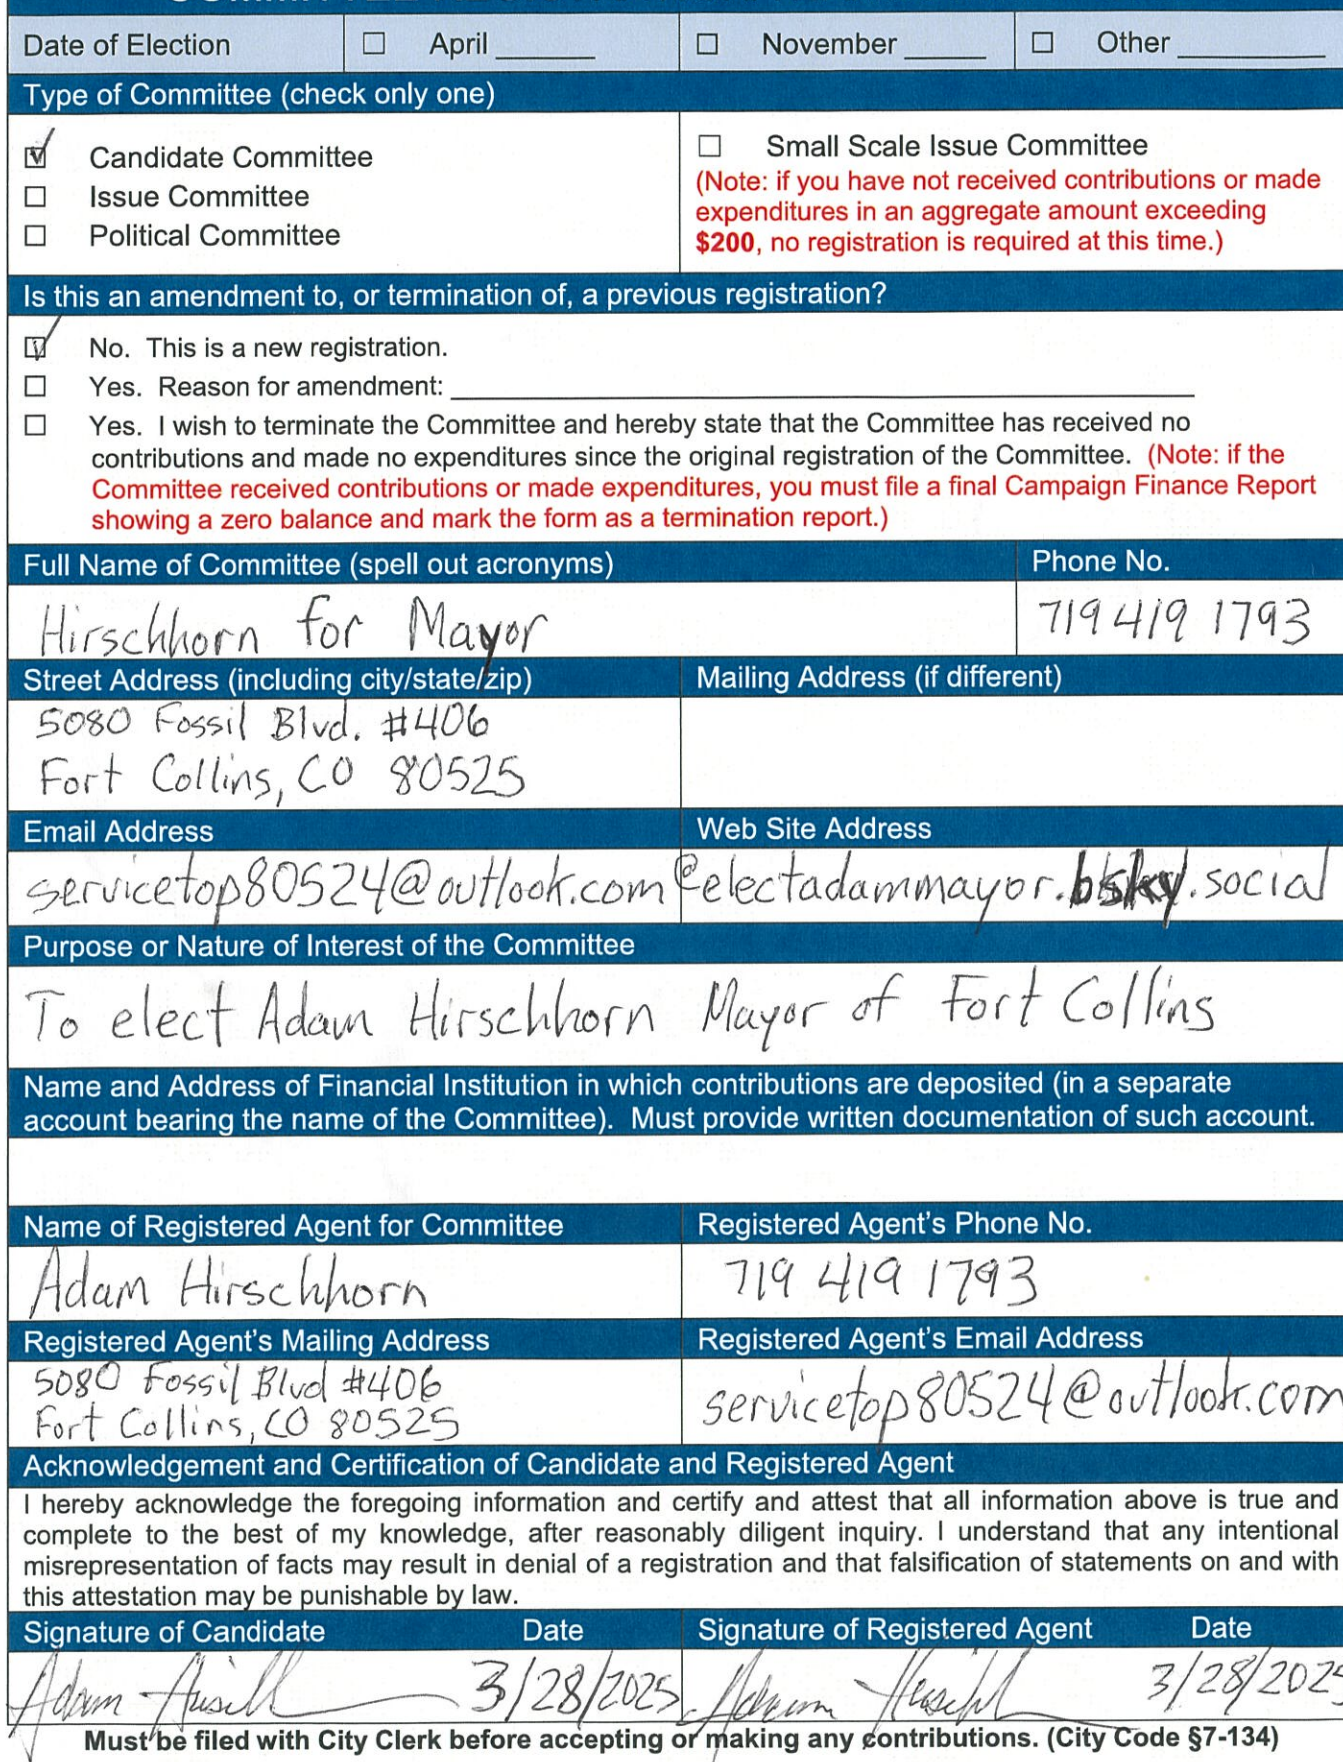 Date of Election ☐ April ______ ☐ November ______ ☐ Other ______
Type of Committee (check only one)
☑ Candidate Committee
☐ Issue Committee
☐ Political Committee
☐ Small Scale Issue Committee
(Note: if you have not received contributions or made
expenditures in an aggregate amount exceeding
$200, no registration is required at this time.)
Is this an amendment to, or termination of, a previous registration?
☑ No. This is a new registration.
☐ Yes. Reason for amendment: ______
☐ Yes. I wish to terminate the Committee and hereby state that the Committee has received no
contributions and made no expenditures since the original registration of the Committee. (Note: if the
Committee received contributions or made expenditures, you must file a final Campaign Finance Report
showing a zero balance and mark the form as a termination report.)
Full Name of Committee (spell out acronyms) Phone No.
Hirschhorn for Mayor 719 419 1793
Street Address (including city/state/zip) Mailing Address (if different)
5080 Fossil Blvd. #406
Fort Collins, CO 80525
Email Address Web Site Address
servicetop80524@outlook.com @electadammayor.bsky.social
Purpose or Nature of Interest of the Committee
To elect Adam Hirschhorn Mayor of Fort Collins
Name and Address of Financial Institution in which contributions are deposited (in a separate
account bearing the name of the Committee). Must provide written documentation of such account.
Name of Registered Agent for Committee Registered Agent's Phone No.
Adam Hirschhorn 719 419 1793
Registered Agent's Mailing Address Registered Agent's Email Address
5080 Fossil Blvd #406
Fort Collins, CO 80525
servicetop80524@outlook.com
Acknowledgement and Certification of Candidate and Registered Agent
I hereby acknowledge the foregoing information and certify and attest that all information above is true and
complete to the best of my knowledge, after reasonably diligent inquiry. I understand that any intentional
misrepresentation of facts may result in denial of a registration and that falsification of statements on and with
this attestation may be punishable by law.
Signature of Candidate Date Signature of Registered Agent Date
Adam 3/28/2025 Adam 3/28/2025
Must be filed with City Clerk before accepting or making any contributions. (City Code §7-134)